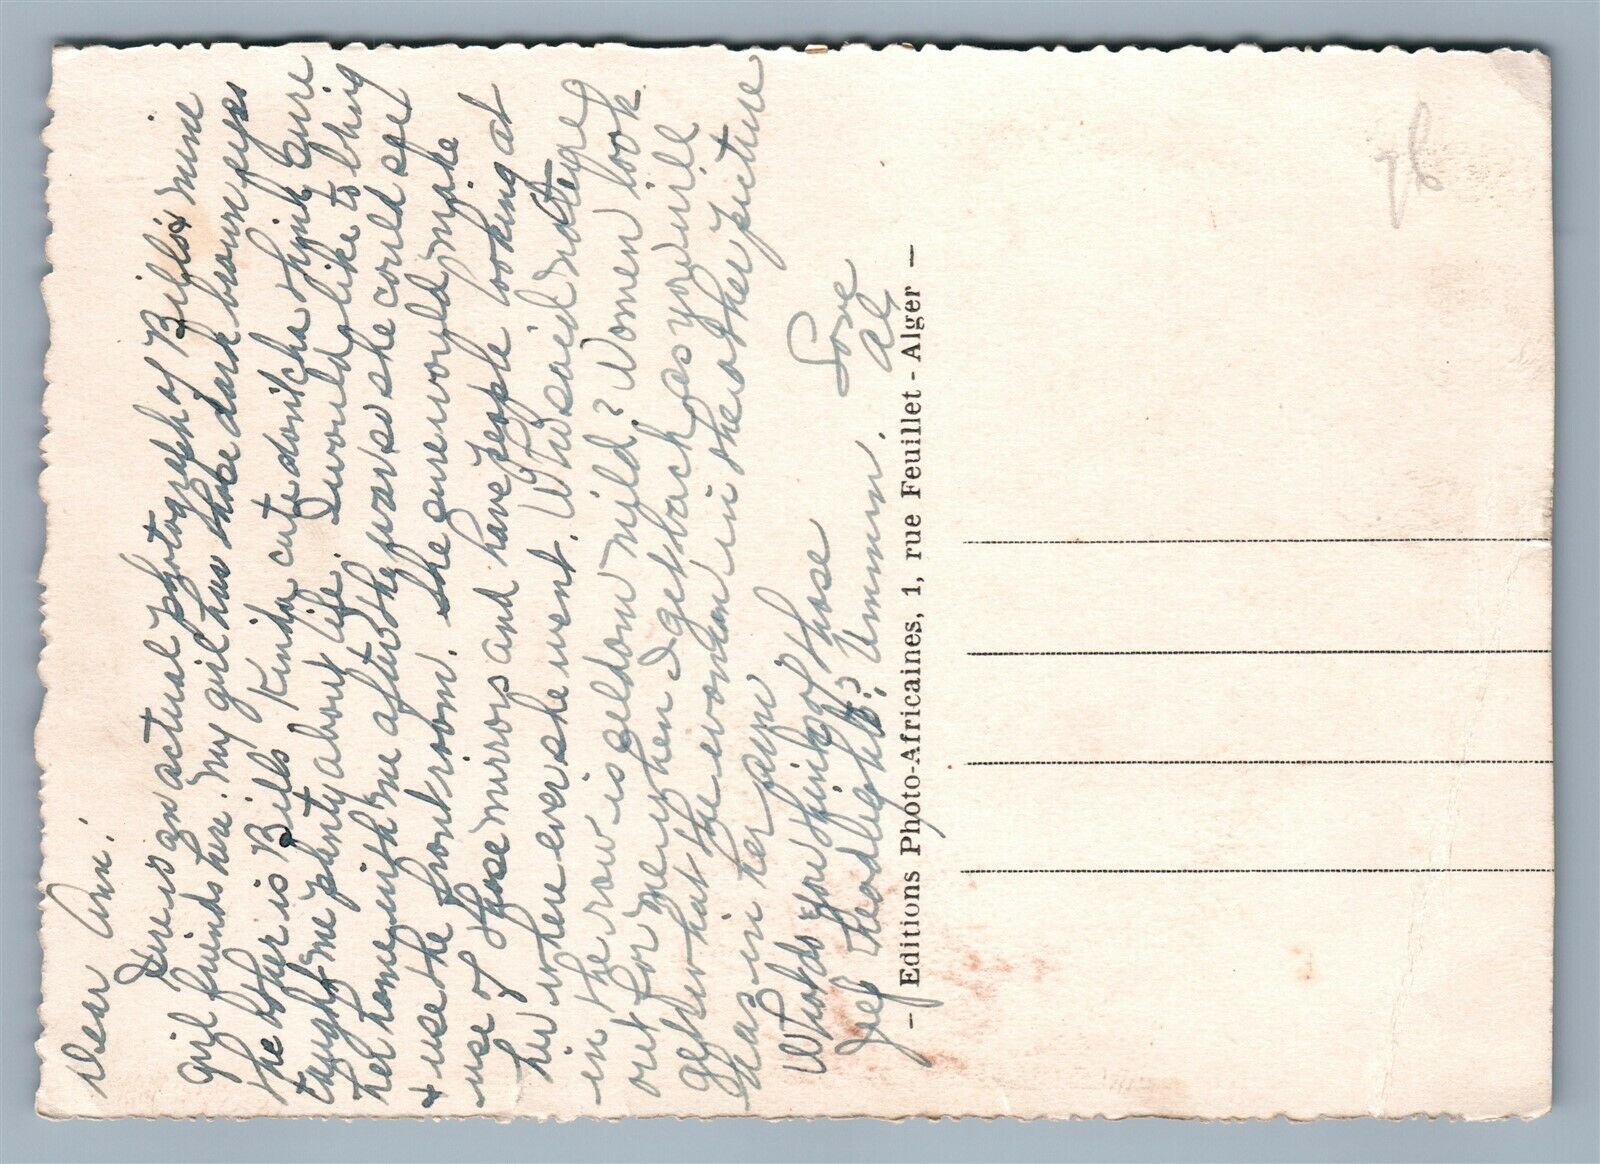 Dear Ann:
Here is an actual photograph of Bill's & mine
girl friends here. My girl has those dark brown eyes
the other is Bills Kinda cute don'tcha think sure
taught me plenty about life. I would like to bring
her home with me after the war so she could set
& use the front room. She sure would make
use of those mirrors and have people looking at
her where ever she went. Who said
in the row is seldom mild? Women look
out for me when I get back as you will
get what the woman in the other picture
has in her eye
What do you think of those
headlights? Ummmm.
Love
Al
- Editions Photo-Africaines, 1, rue Feuillet - Alger -